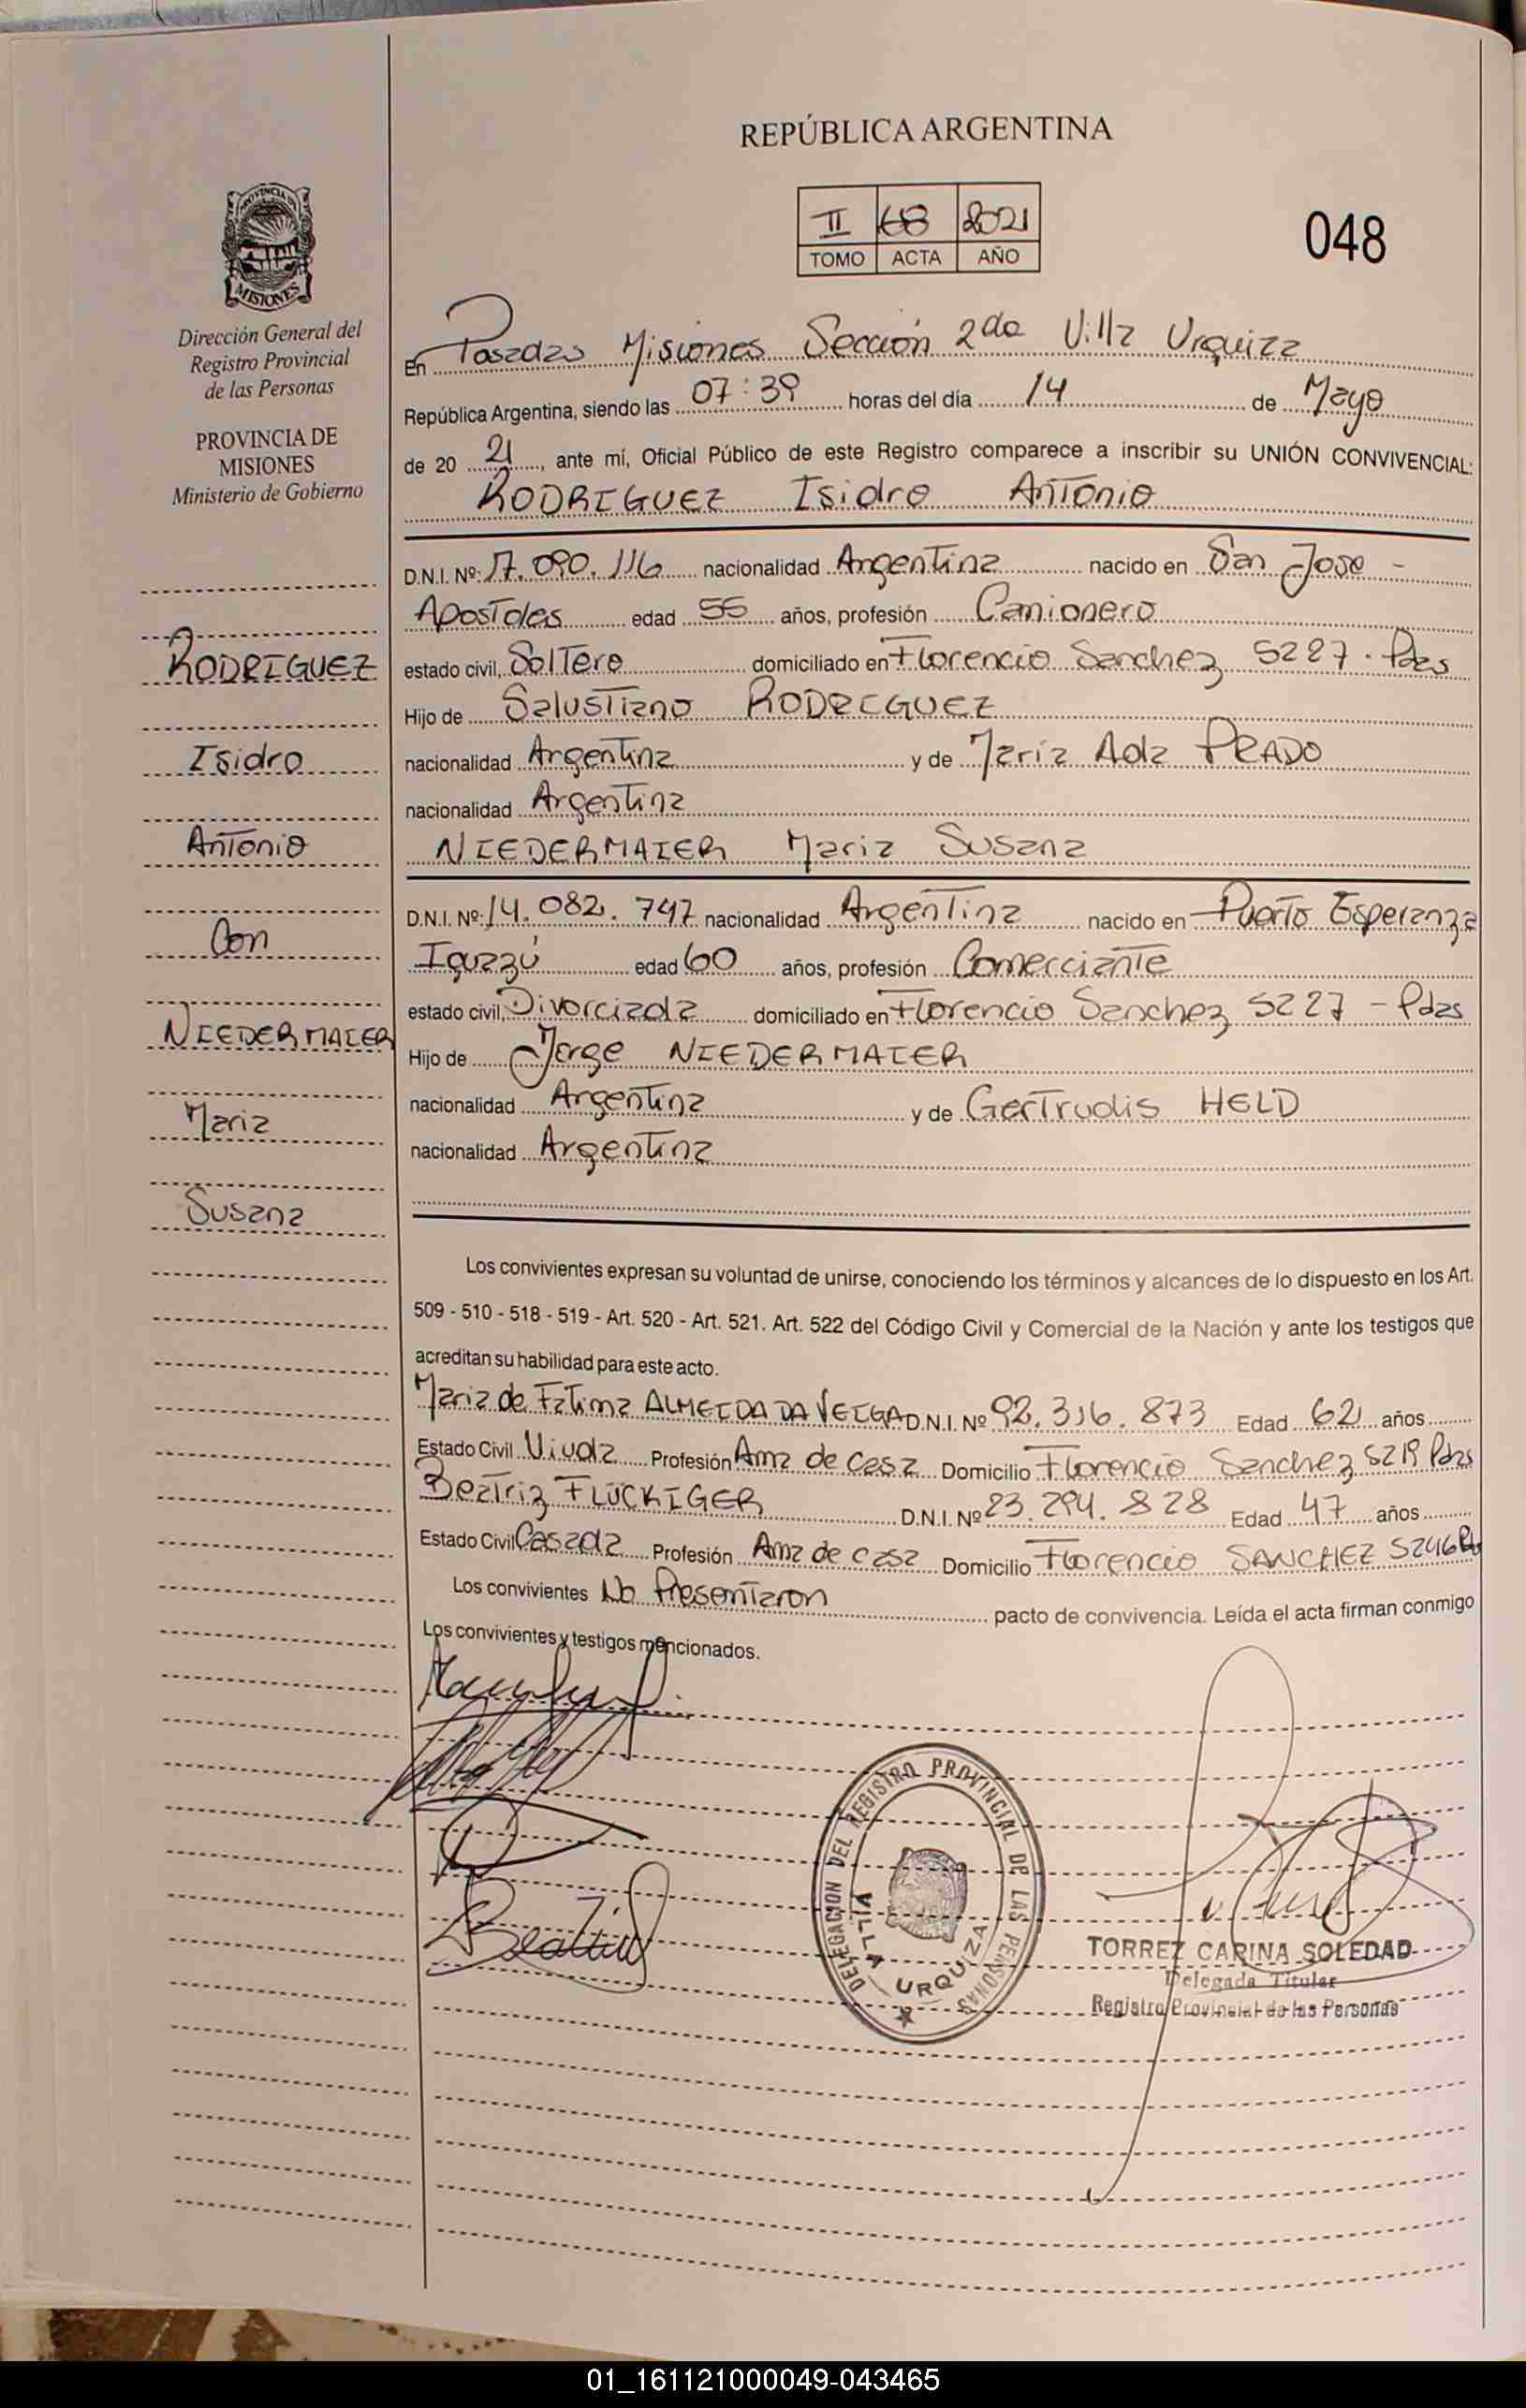 REPÚBLICA ARGENTINA
II 68 2021
TOMO ACTA AÑO
048
PROVINCIA DE
MISIONES
Dirección General del
Registro Provincial
de las Personas
PROVINCIA DE
MISIONES
Ministerio de Gobierno
RODRIGUEZ
Isidro
Antonio
Con
NIEDERMAIER
Maria
Susana
En Posadas Misiones Sección 2da Villa Urquiza
República Argentina, siendo las 07:39 horas del día 14 de Mayo
de 20 21, ante mí, Oficial Público de este Registro comparece a inscribir su UNIÓN CONVIVENCIAL:
RODRIGUEZ Isidro Antonio
D.N.I. Nº: 17.090.116 nacionalidad Argentina nacido en San Jose -
Apostoles edad 55 años, profesión Camionero
estado civil, Soltero domiciliado en Florencio Sanchez 5227 - Pdas
Hijo de Salustiano RODRIGUEZ
nacionalidad Argentina y de María Ada PRADO
nacionalidad Argentina
NIEDERMAIER Maria Susana
D.N.I. Nº: 14.082.747 nacionalidad Argentina nacido en Puerto Esperanza
Iguazú edad 60 años, profesión Comerciante
estado civil, Divorciada domiciliado en Florencio Sanchez 5227 - Pdas
Hijo de Jorge NIEDERMAIER
nacionalidad Argentina y de Gertrudis HELD
nacionalidad Argentina
Los convivientes expresan su voluntad de unirse, conociendo los términos y alcances de lo dispuesto en los Art.
509 - 510 - 518 - 519 - Art. 520 - Art. 521. Art. 522 del Código Civil y Comercial de la Nación y ante los testigos que
acreditan su habilidad para este acto.
Maria de Fatima ALMEIDA DA VEIGA D.N.I. Nº 92.316.873 Edad 62 años
Estado Civil Viuda Profesión Ama de casa Domicilio Florencio Sanchez 5219 Pdas
Beatriz FLÜCKIGER D.N.I. Nº 23.294.828 Edad 47 años
Estado Civil Casada Profesión Ama de casa Domicilio Florencio SANCHEZ 5246
Los convivientes No Presentaron pacto de convivencia. Leída el acta firman conmigo
Los convivientes y testigos mencionados.
DELEGACION DEL REGISTRO PROVINCIAL DE LAS PERSONAS
VILLA URQUIZA
TORREZ CARINA SOLEDAD
Delegada Titular
Registro Provincial de las Personas
01_161121000049-043465